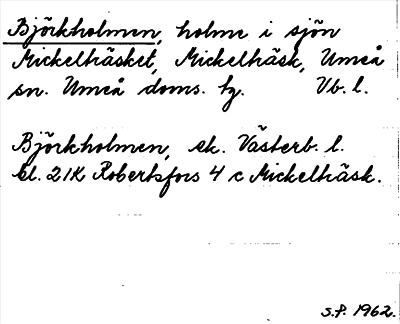 Björkholmen, holme i sjön
Mickelträsket, Mickelträsk, Umeå
sn. Umeå doms. hg. Vb. l.
Björkholmen, ek. Västerb. l.
bl. 21K Robertsfors 4 c Mickelträsk.
S.P. 1962.